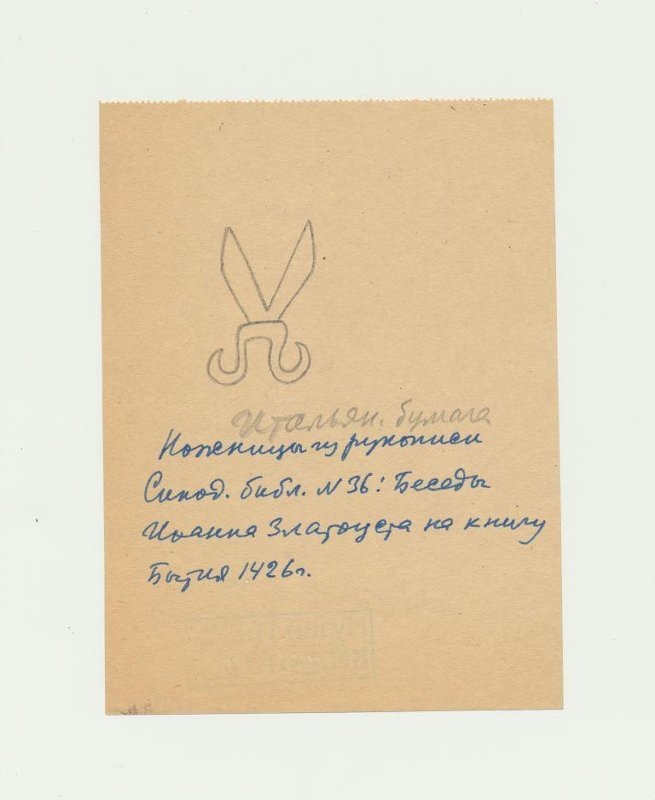 Итальян. бумага
Ножницы из рукописи
Синод. библ. № 36: Беседы
Иоанна Златоуста на книгу
Бытия 1426 г.